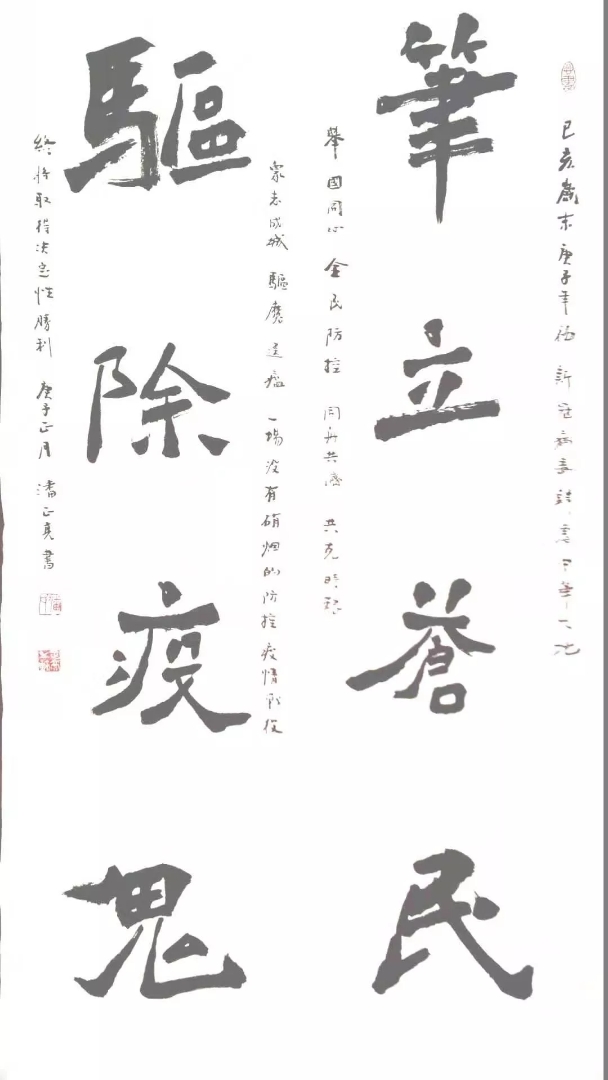 己亥歲末庚子年初新冠病毒肆虐中華大地
筆立蒼民
舉國同心 全民防控 同舟共濟 共克時艱
眾志成城 驅魔送瘟 一場没有硝烟的防控疫情戰役
驅除疫鬼
終將取得决定性勝利 庚子正月 潘正亮書